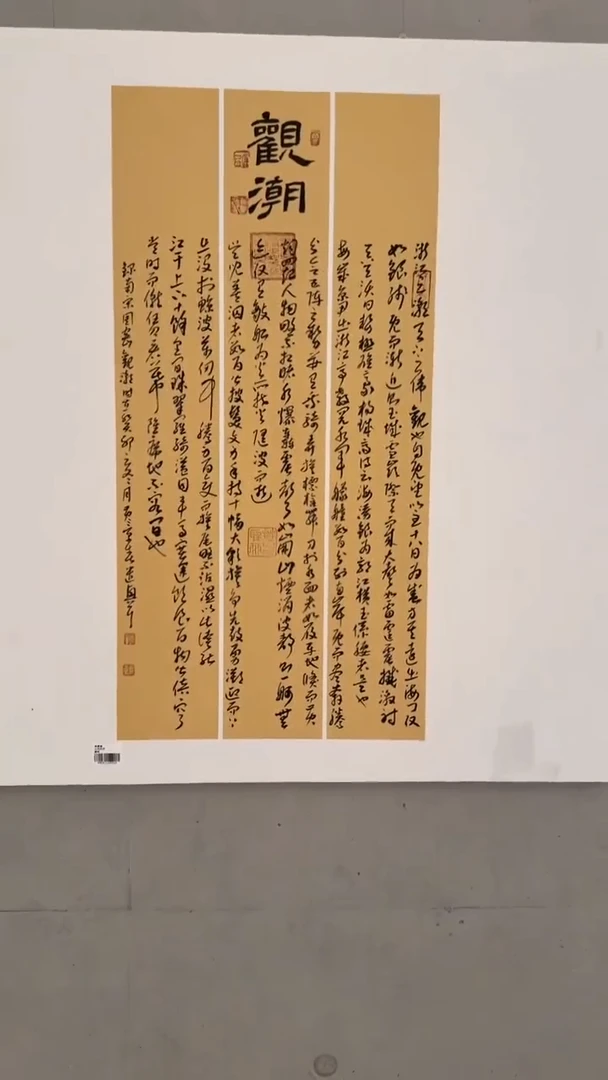 觀潮
浙江之潮天下之偉觀也自既望以至十八日为最盛方其遠出海门仅
如銀线既而漸近則玉城雪嶺際天而來大聲如雷霆震撼激射
吞天沃日势極雄豪楊誠齋诗云海湧銀为郭江橫玉係腰者是也
每歲京尹出浙江亭教阅水軍艨艟數百分列两岸既而尽奔騰
分合五阵之勢并有乘騎弄旗標槍舞刀於水面者如履平地倏而黄
烟四起人物略不相睹水爆轟震声如崩山煙消波静则一舸無
迹仅有敵船为火所焚随波而逝
吴兒善泅者數百皆披髮文身手持十幅大彩旗争先鼓勇溯迎而上
出没於鲸波萬仞中騰身百变而旗尾略不沾濕以此誇能
江干上下十餘里间珠翠羅綺溢目車馬塞途饮食百物皆倍穹
常时而僦賃看幕雖席地不容間也
録南宋周密觀潮时在癸卯之夏月